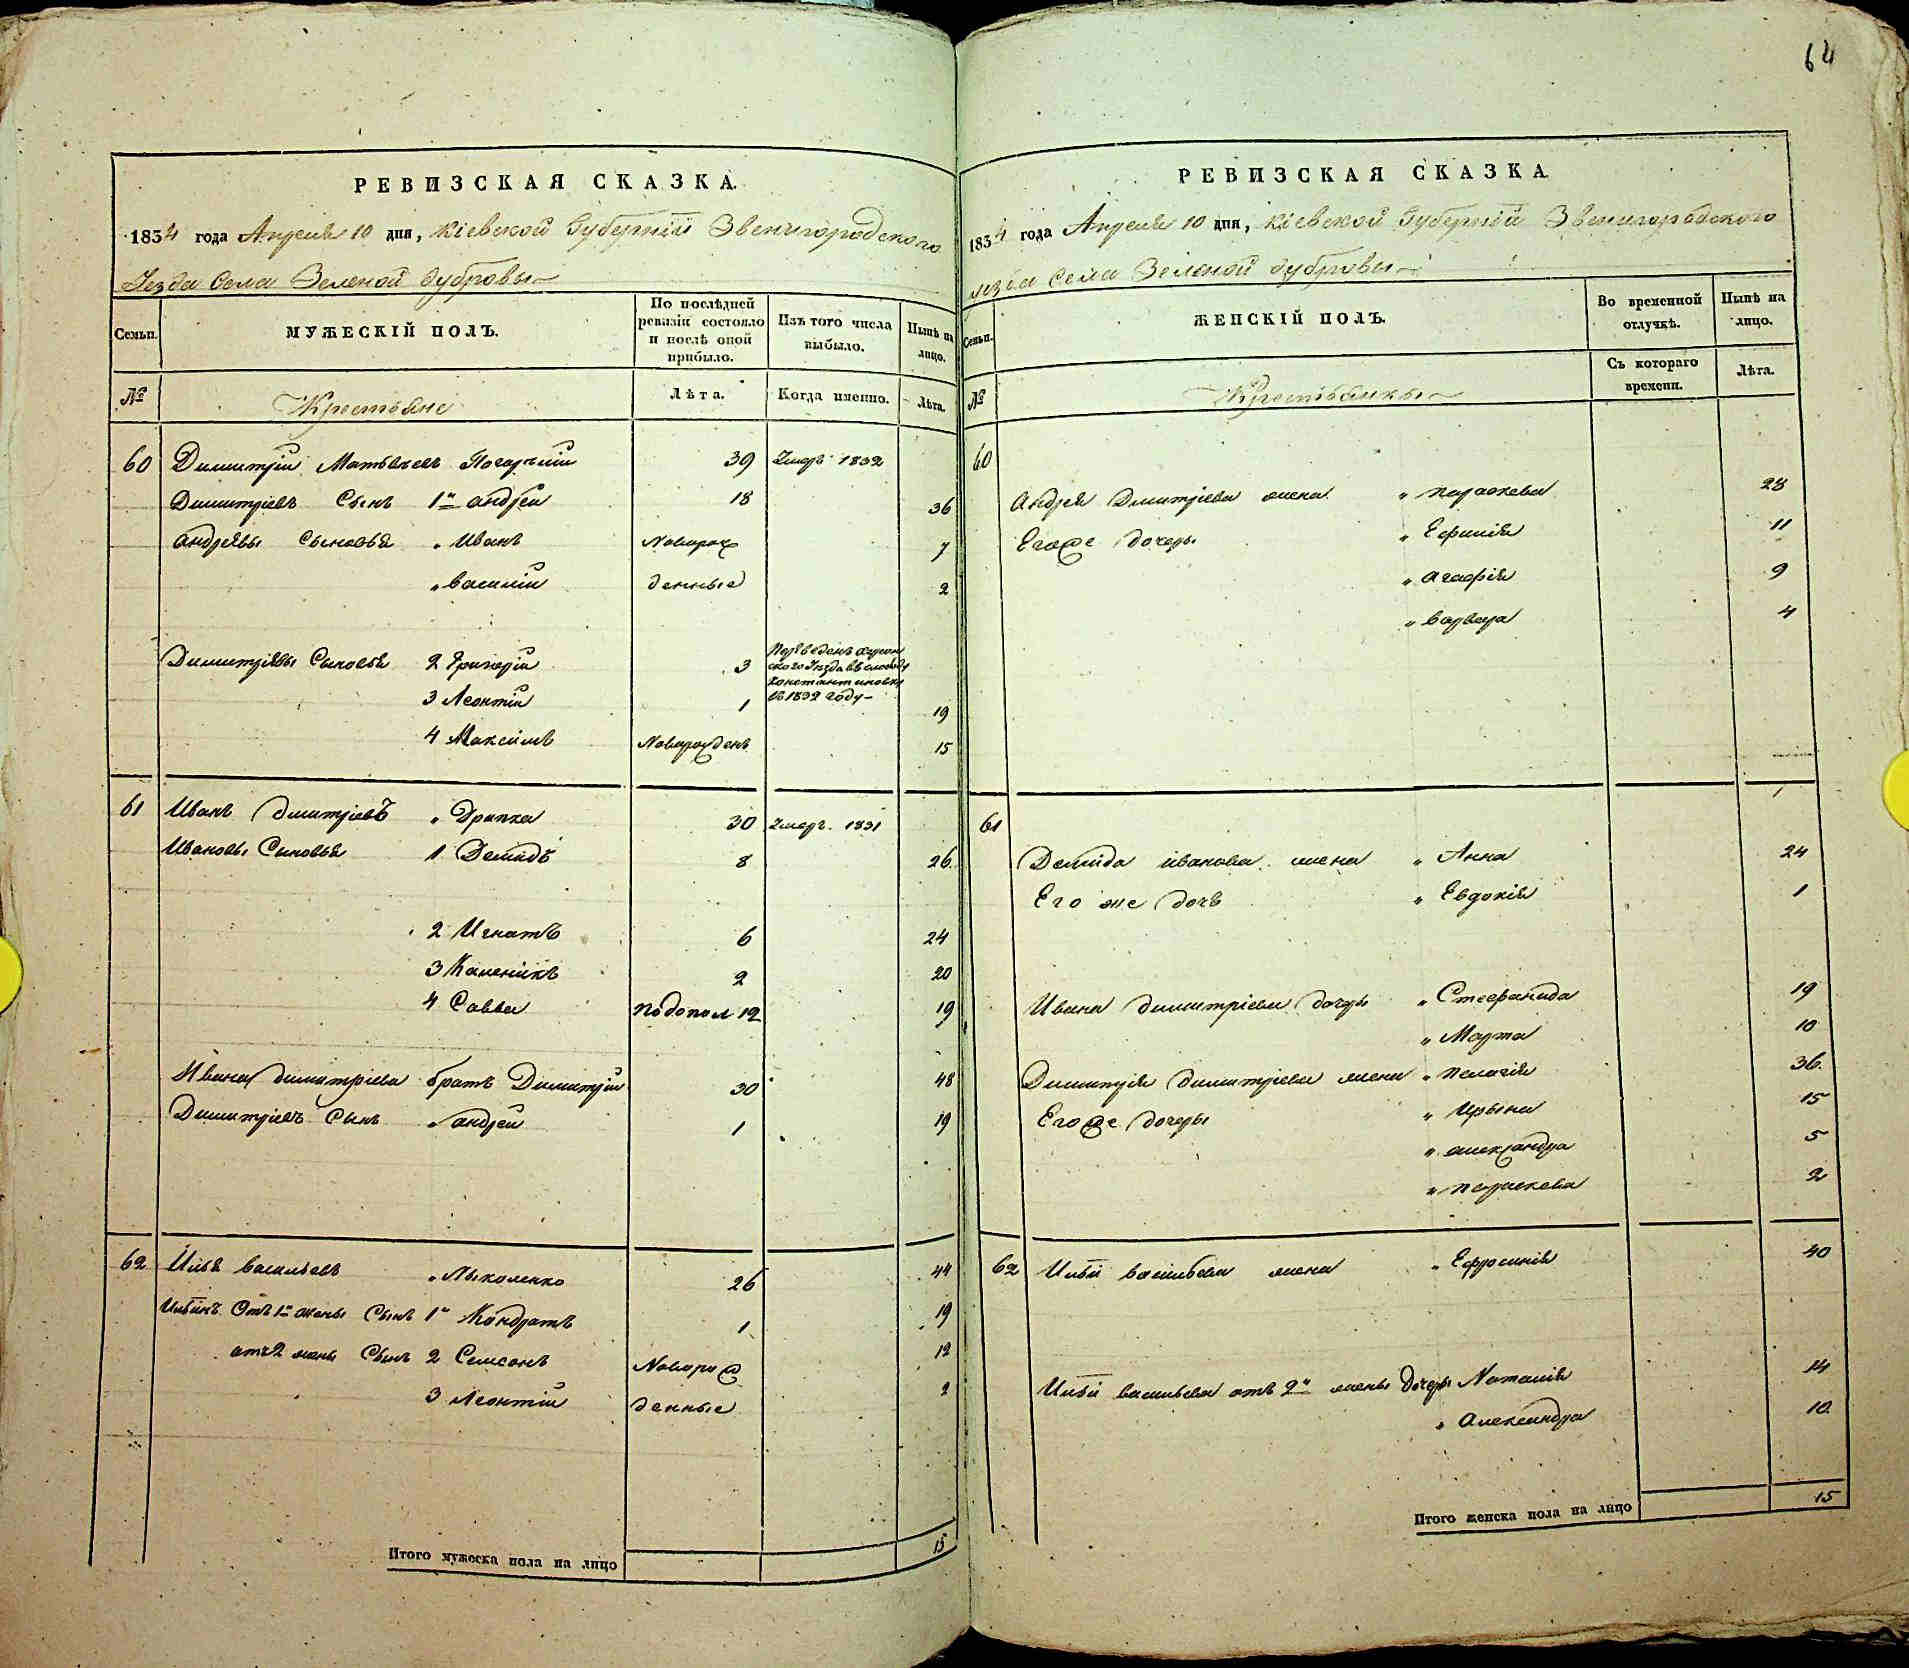 64
РЕВИЗСКАЯ СКАЗКА.
1834 года Апреля 10 дня, Кіевской Губерніи Звенигородского
Уезда Села Зеленой дубровы
Семьи.
МУЖЕСКІЙ ПОЛЪ.
По послѣдней ревизіи состояло и послѣ оной прибыло.
Изъ того числа выбыло.
Нынѣ на лицо.
№
Крестьяне
Лѣта.
Когда именно.
Лѣта.
60 Димитрій Матвѣевъ 39 Умеръ 1832
Димитріевъ Сынъ 1й андрей 18 36
андрѣевы Сыновья „ Иванъ Новорож 7
„ василій денные 2
Димитріевы Сыновья 2 Григорій 3 Переведенъ херсон
ского Уезда въ слободу
константиновку
въ 1832 году
3 Леонтій 1 19
4 Максимъ Новорожденъ 15
61 Иванъ дмитріевъ „ Дрипка 30 Умеръ 1831
Ивановы Сыновья 1 Демидъ 8 26
2 Игнатъ 6 24
3 Каленикъ 2 20
4 Савва подопол 12 19
Ивана димитріева братъ Димитрій 30 48
Димитріевъ Сынъ „ андрей 1 19
62 Илья васильевъ „ 26 44
Ильинъ Отъ 1й жены Сынъ 1й Кондратъ 1 19
отъ 2 жены Сынъ 2 Семсонъ Новорож 12
3 Леонтій денные 2
Итого мужеска пола на лицо 15
РЕВИЗСКАЯ СКАЗКА.
1834 года Апреля 10 дня, Кіевской Губерніи Звенигородского
уезда Села Зеленой дубровы
Семьи.
ЖЕНСКІЙ ПОЛЪ.
Во временной отлучкѣ.
Нынѣ на лицо.
№
Крестьянки
Съ котораго времени.
Лѣта.
60
Андрея Дмитріева жена „ параскева 28
Егоже дочеры „ Ефимія 11
„ агафія 9
„ варвара 4
61
Демида иванова жена „ Анна 24
Его же дочь „ Евдокія 1
Ивана димитріева дочеры „ Стефанида 19
„ Марта 10
Димитрія димитріева жена „ пелагія 36
Егоже дочеры „ Ирына 15
„ александра 5
„ параскева 2
62 Ильи васильева жена „ Ефросинія 40
Ильи васильева отъ 2й жены дочеры Наталія 14
„ Александра 10
Итого женска пола на лицо 15